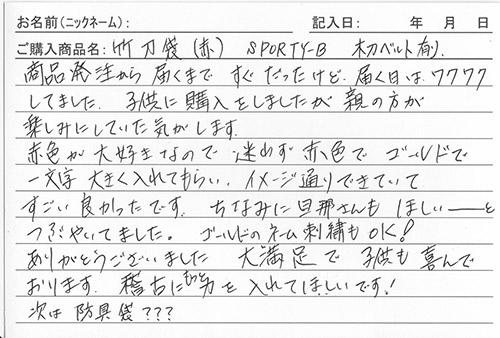 お名前(ニックネーム): 記入日: 年 月 日
ご購入商品名: 竹刀袋(赤) SPORTY-B 木刀ベルト有り.
商品発注から届くまで すぐだったけど. 届く日は. ワクワク
してました. 子供に購入をしましたが 親の方が
楽しみにしていた気がします.
赤色が大好きなので 迷わず赤色で ゴールドで
一文字 大きく入れてもらい. イメージ通りできていて
すごい良かったです. ちなみに旦那さんも ほしい――と
つぶやいてました。 ゴールドのネーム刺繍もOK!
ありがとうございました 大満足で 子供も喜んで
おります. 稽古にもっと力を入れてほしいです!
次は防具袋???